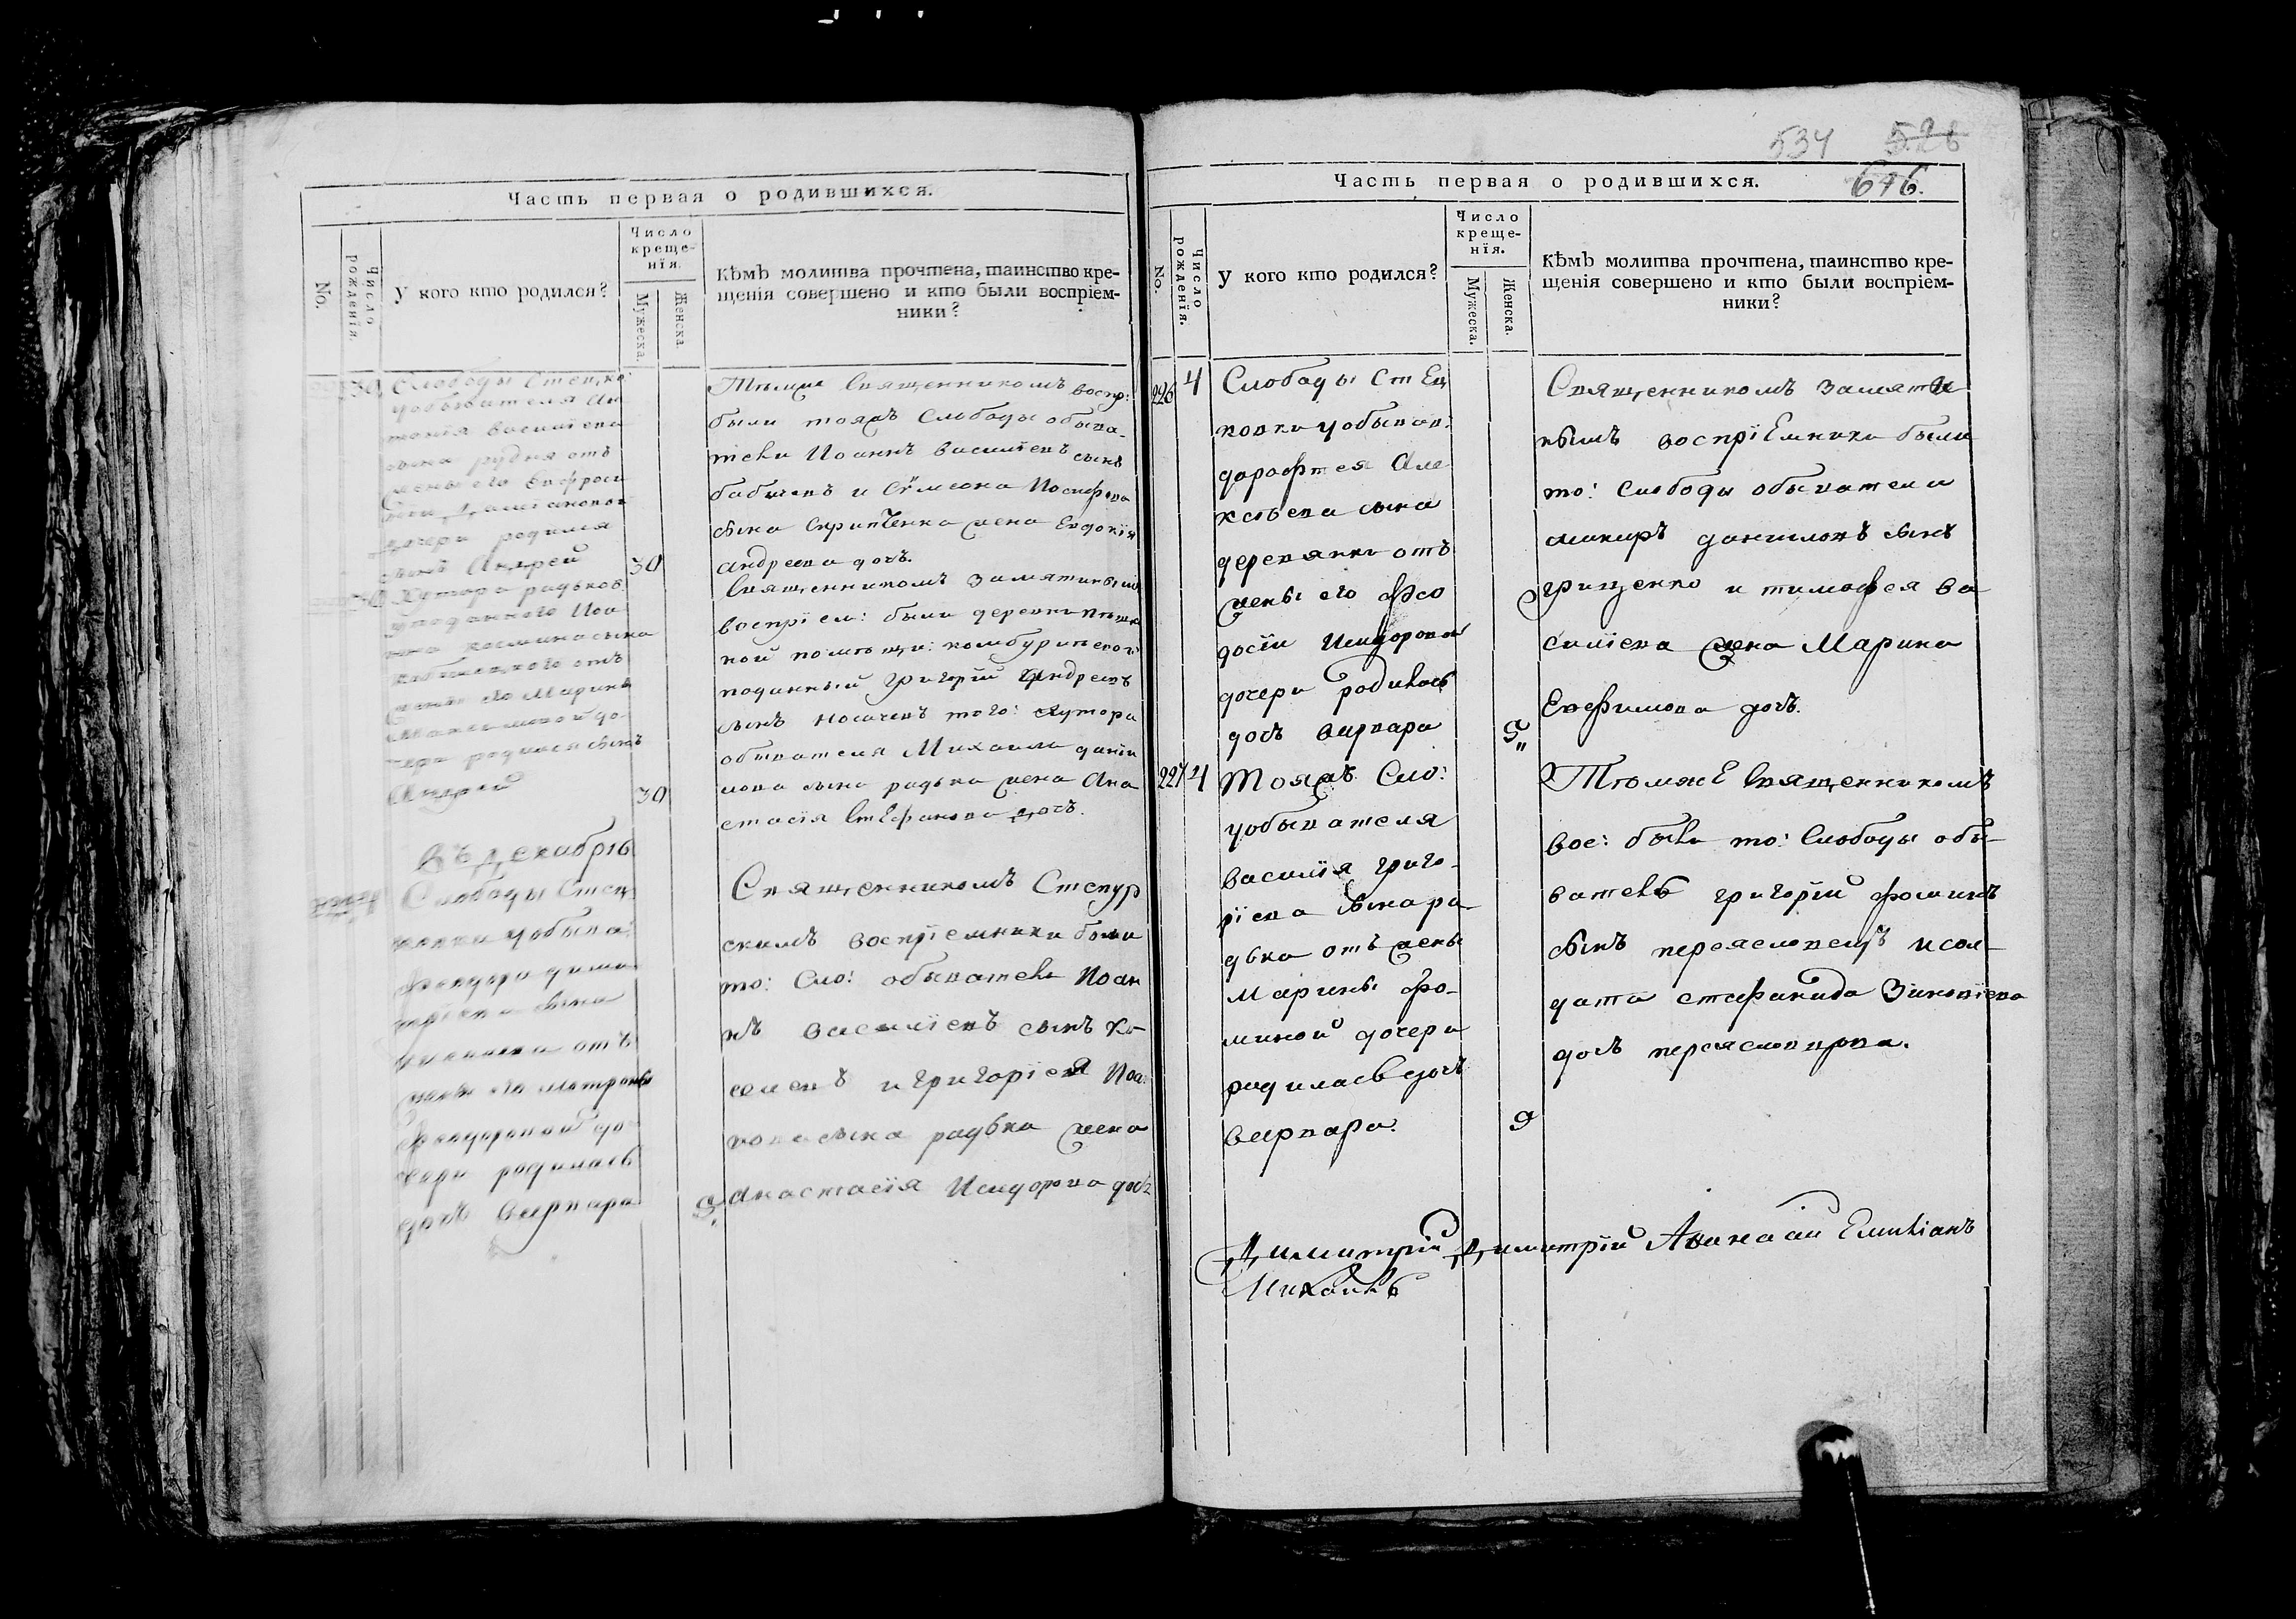 Часть первая о родившихся.
No.
Число рожденія.
У кого кто родился?
Число
креще-
нія.
Мужеска.
Женска.
Кѣмъ молитва прочтена, таинство кре-
щенія совершено и кто были воспріем-
ники?
30
Слободы Стецко:
уобывателя Ан
тонія василіева
сына рудя отъ
жены его Евфроси
дочери родился
сынъ Андрей
30
Тѣмже Священникомъ воспр:
были тояжъ Слободы обыва-
тели Иоаннъ василіевъ сынъ
бабичевъ и Сѵмеона Иосифова
сына Скрипченка жена Евдокія
андреева дочь.
30
Хутора радьков
уподаннаго Иоа
нна космина сына
отъ
жены его Марины
Максимовой до-
чери родился сынъ
Андрей
30
Священникомъ Замятинымъ
воспріем: были деревни
кой помѣщи: комбурлѣевой
поданный Григорій Андреевъ
сынъ носачевъ того: Хутора
обывателя Михаила даніи
лова сына радька жена Ана
стасія Стефанова дочь.
въ декабрѣ
Слободы Стец
ковки уобыва:
феодора дими
тріева сына
отъ
жены его Матроны
феодоровой до
чери родилась
дочь варвара
Священникомъ Степур
скимъ воспріемники были
то: Сло: обыватели Иоан
нъ василіевъ сынъ Ко-
селевъ и григорія Иоа
нова сына радька жена
анастасія Исидорова дочь
534
528
676.
Часть первая о родившихся.
No.
Число рожденія.
У кого кто родился?
Число
креще-
нія.
Мужеска.
Женска.
Кѣмъ молитва прочтена, таинство кре-
щенія совершено и кто были воспріем-
ники?
226
4
Слободы Стец
ковки уобыват:
дорофтея Але
ксѣева сына
деревянки отъ
жены его фео
досіи Исидоровой
дочери родилась
дочь варвара
Священникомъ Замяти
нымъ воспріемники были
то: Слободы обыватели
макаръ даниловъ сынъ
грищенко и тимофея ва
силіева жена Марина
Евфимова дочь.
227
4
Тояжъ Сло:
уобывателя
василія григо-
ріева сына ра-
дька отъ жены
Марины фо-
миной дочери
родилась дочь
варвара.
Тѣмже Священникомъ
вос: были то: Слободы обы-
ватель григорій фоминъ
сынъ переясловецъ и сол-
дата стефанида Зиновіева
дочь переясловцова.
Димитрій Димитрій Аѳанасій Емиліанъ
Михаилъ